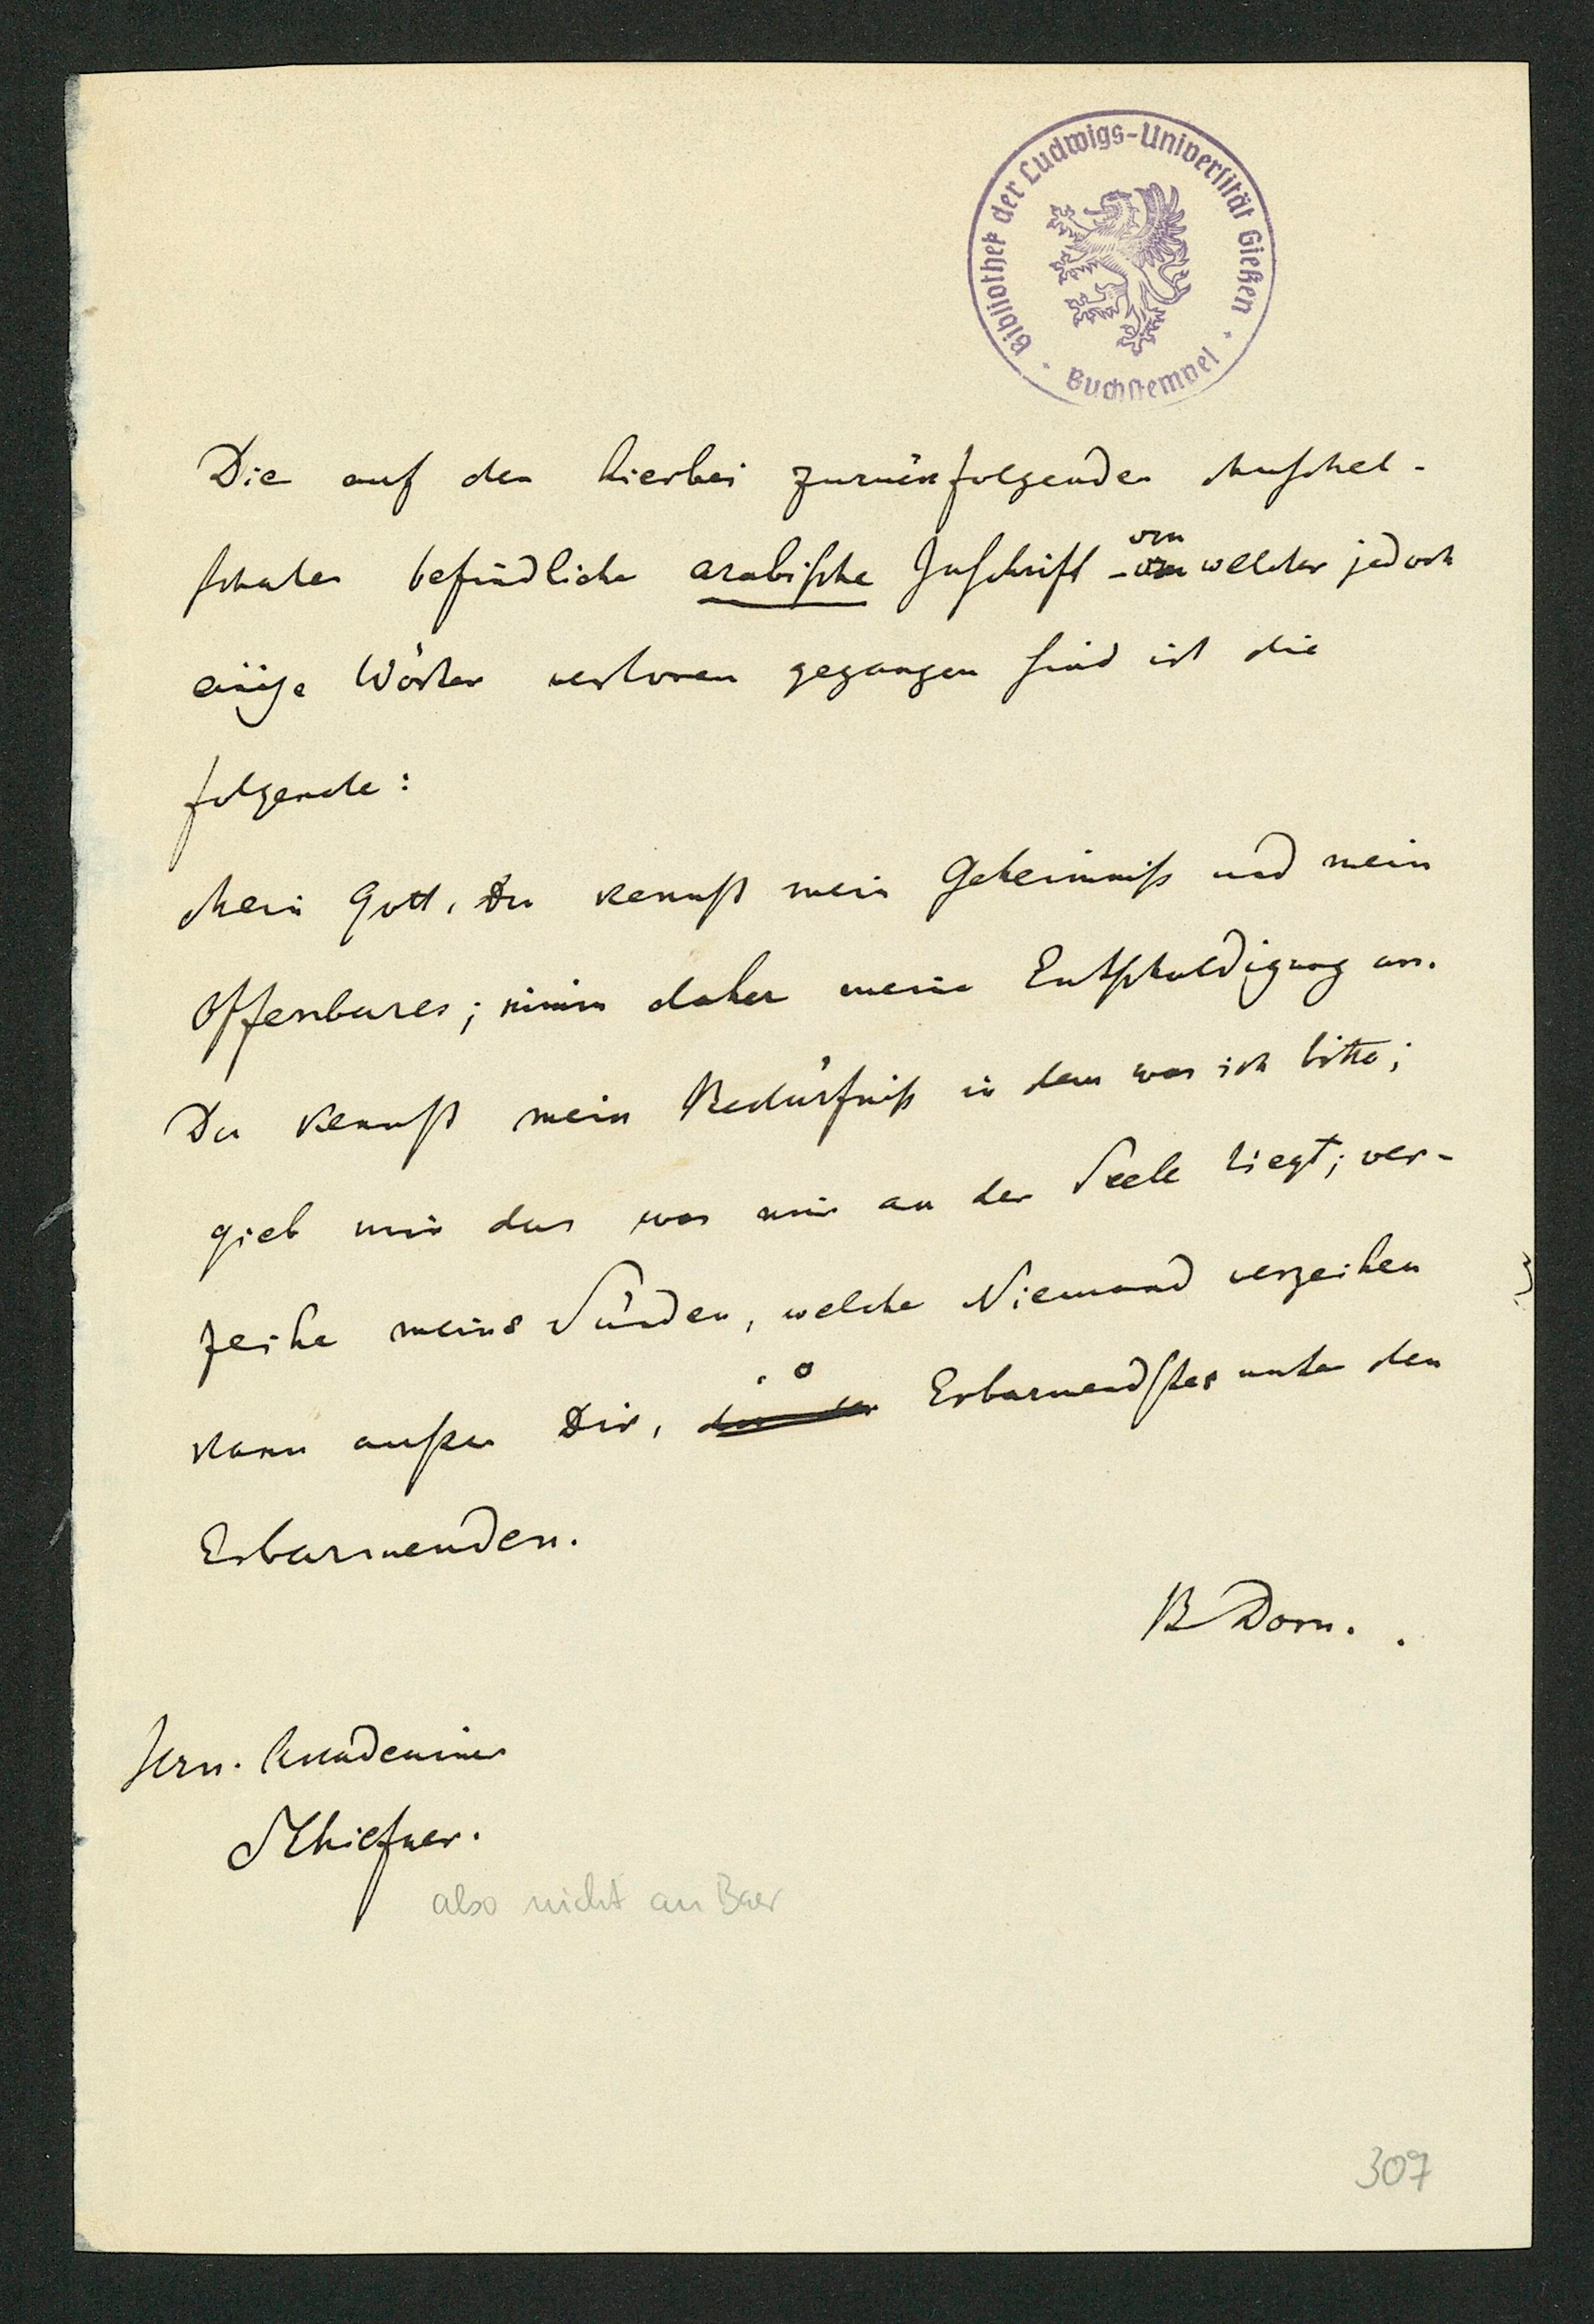 Bibliothek der Ludwigs-Universität Gießen
Buchstempel
Die auf den hierbei zurückfolgenden Muschel-
schalen befindliche arabische Inschrift – von
von welcher jedoch
einige Wörter verloren gegangen sind ist die
folgende:
Mein Gott, Du kennst mein Geheimniß und mein
Offenbares; nimm daher meine Entschuldigung an.
Du kennst mein Bedürfniß in dem was ich bitte;
gieb mir das was mir an der Seele liegt; ver-
zeihe meine Sünden, welche Niemand verzeihen
kann außer Dir, o Erbarmendster unter den
Erbarmenden.
B Dorn.
Hrn. Akademiker
Schiefner.
also nicht an Baer
307